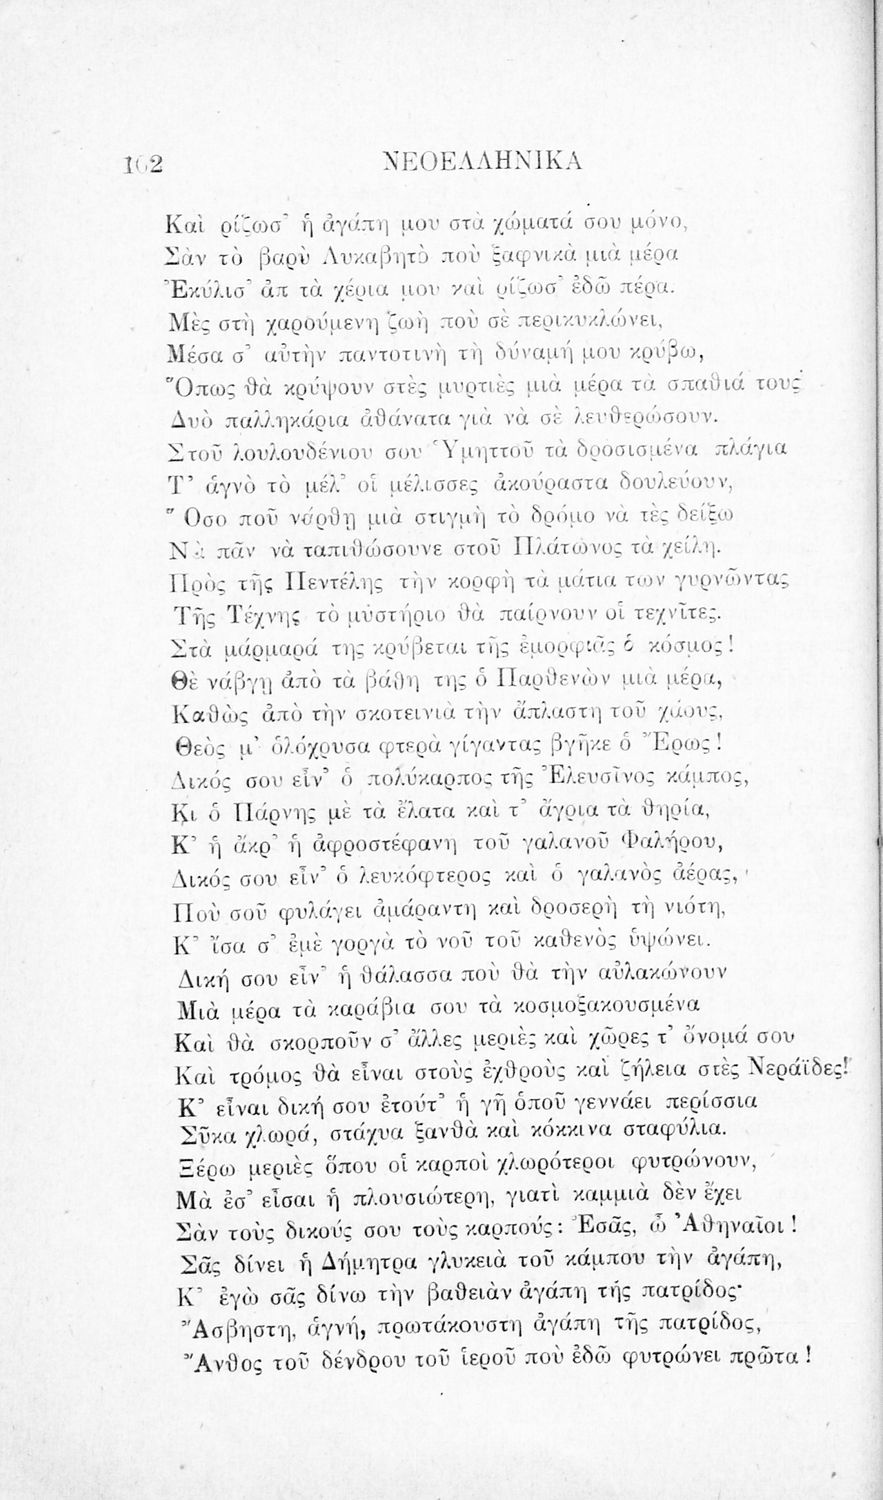 102 ΝΕΟΕΛΛΗΝΙΚΑ
Καὶ ρίζωσ᾿ ἡ ἀγάπη μου στὰ χώματά σου μόνο,
Σὰν τὸ βαρὺ Λυκαβητὸ ποὺ ξαφνικὰ μιὰ μέρα
Ἐκύλισ᾿ ἀπ τὰ χέρια μου καὶ ρίζωσ᾿ ἐδῶ πέρα.
Μὲς στὴ χαρούμενη ζωὴ ποὺ σὲ περικυκλώνει,
Μέσα σ᾿ αὐτὴν παντοτινὴ τὴ δύναμή μου κρύβω,
Ὅπως θὰ κρύψουν στὲς μυρτιὲς μιὰ μέρα τὰ σπαθιά τους
Δυὸ παλληκάρια ἀθάνατα γιὰ νὰ σὲ λευθερώσουν.
Στοῦ λουλουδένιου σου Ὑμηττοῦ τὰ δροσισμένα πλάγια
Τ᾿ ἁγνὸ τὸ μέλ᾿ οἱ μέλισσες ἀκούραστα δουλεύουν,
Ὅσο ποῦ νάρθῃ μιὰ στιγμὴ τὸ δρόμο νὰ τὲς δείξω
Νὰ πᾶν νὰ ταπιθώσουνε στοῦ Πλάτωνος τὰ χείλη.
Πρὸς τῆς Πεντέλης τὴν κορφὴ τὰ μάτια των γυρνῶντας
Τῆς Τέχνης τὸ μυστήριο θὰ παίρνουν οἱ τεχνῖτες.
Στὰ μάρμαρά της κρύβεται τῆς ἐμορφιᾶς ὁ κόσμος!
Θὲ νάβγῃ ἀπὸ τὰ βάθη της ὁ Παρθενὼν μιὰ μέρα,
Καθὼς ἀπὸ τὴν σκοτεινιὰ τὴν ἄπλαστη τοῦ χάους,
Θεὸς μ᾿ ὁλόχρυσα φτερὰ γίγαντας βγῆκε ὁ Ἔρως!
Δικός σου εἶν᾿ ὁ πολύκαρπος τῆς Ἐλευσῖνος κάμπος,
Κι ὁ Πάρνης μὲ τὰ ἔλατα καὶ τ᾿ ἄγρια τὰ θηρία,
Κ᾿ ἡ ἄκρ᾿ ἡ ἀφροστέφανη τοῦ γαλανοῦ Φαλήρου,
Δικός σου εἶν᾿ ὁ λευκόφτερος καὶ ὁ γαλανὸς ἀέρας,
Ποὺ σοῦ φυλάγει ἀμάραντη καὶ δροσερὴ τὴ νιότη,
Κ᾿ ἴσα σ᾿ ἐμὲ γοργὰ τὸ νοῦ τοῦ καθενὸς ὑψώνει.
Δική σου εἶν᾿ ἡ θάλασσα ποὺ θὰ τὴν αὐλακώνουν
Μιὰ μέρα τὰ καράβια σου τὰ κοσμοξακουσμένα
Καὶ θὰ σκορποῦν σ᾿ ἄλλες μεριὲς καὶ χῶρες τ᾿ ὄνομά σου
Καὶ τρόμος θὰ εἶναι στοὺς ἐχθροὺς καὶ ζήλεια στὲς Νεράϊδες!
Κ᾿ εἶναι δική σου ἐτούτ᾿ ἡ γῆ ὁποῦ γεννάει περίσσια
Σῦκα χλωρά, στάχυα ξανθὰ καὶ κόκκινα σταφύλια.
Ξέρω μεριὲς ὅπου οἱ καρποὶ χλωρότεροι φυτρώνουν,
Μὰ ἐσ᾿ εἶσαι ἡ πλουσιώτερη, γιατὶ καμμιὰ δὲν ἔχει
Σὰν τοὺς δικούς σου τοὺς καρπούς: Ἐσᾶς, ὦ Ἀθηναῖοι!
Σᾶς δίνει ἡ Δήμητρα γλυκειὰ τοῦ κάμπου τὴν ἀγάπη,
Κ᾿ ἐγὼ σᾶς δίνω τὴν βαθειὰν ἀγάπη τῆς πατρίδος·
Ἄσβηστη, ἁγνή, πρωτάκουστη ἀγάπη τῆς πατρίδος,
Ἄνθος τοῦ δένδρου τοῦ ἱεροῦ ποὺ ἐδῶ φυτρώνει πρῶτα!